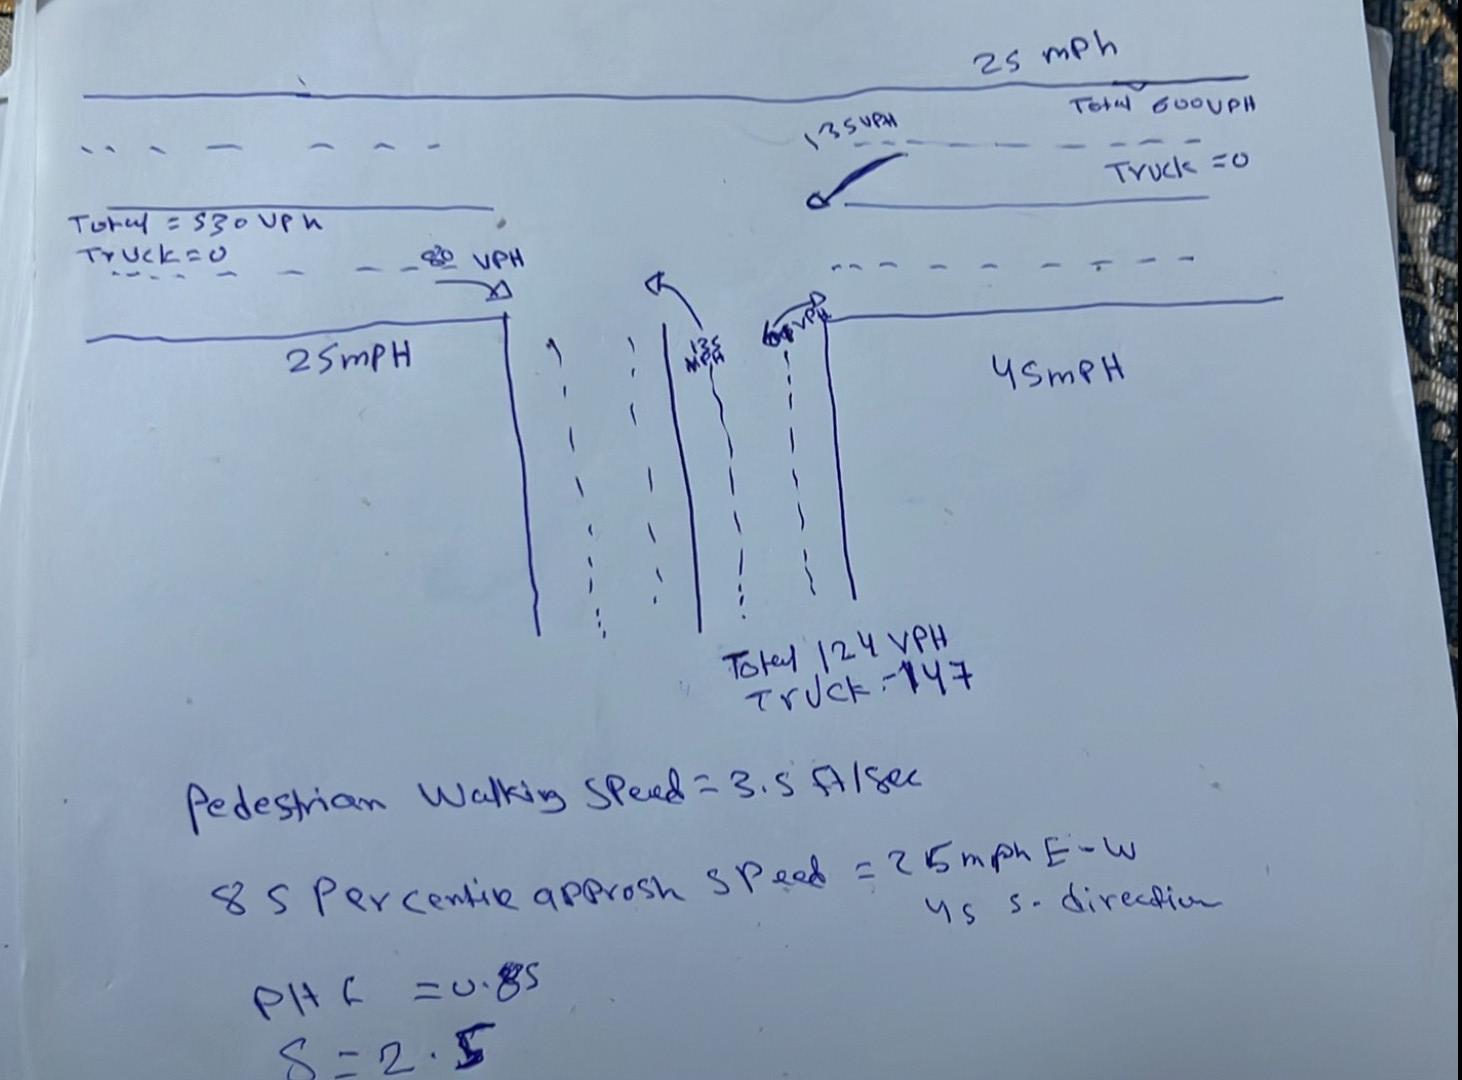 25 mph
Total 600VPH
135VPH
Truck = 0
Total = 530 VPh
Truck = 0
80 VPH
135
MPH
VPH
25mPH
45mPH
Total 124 VPH
Truck = 147
Pedestrian Walking Speed = 3.5 ft/sec
85 Percentile approsh speed = 25mph E-W
45 S. direction
PHF = 0.85
S = 2.5